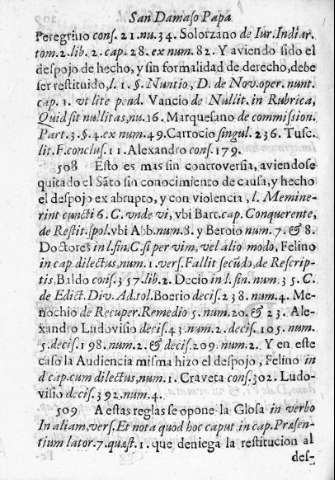 San Damaso Papa
Peregrino cons. 21. nu. 34. Solorzano de Iur. Indiar.
tom. 2. lib. 2. cap. 28. ex num. 82. Y aviendo sido el
despojo de hecho, y sin formalidad de derecho, debe
ser restituido, l. 1. §. Nuntio, D. de Nov. oper. nunt.
cap. 1. vt lite pend. Vancio de Nullit. in Rubrica,
Quid sit nullitas, nu. 16. Marquesano de commission.
Part. 3. §. 4. ex num. 49. Carrocio singul. 236. Tusc.
lit. F. conclus. 11. Alexandro cons. 179.
508 Esto es mas sin controversia, aviendose
quitado el Sãto sin conocimiento de causa, y hecho
el despojo ex abrupto, y con violencia, l. Memine-
rint cuncti 6. C. vnde vi, vbi Bart. cap. Conquerente,
de Restit. spol. vbi Abb. num. 8. y Beroio num. 7. & 8.
Doctores in l. fin. C. si per vim, vel alio modo, Felino
in cap. dilectus, num. 1. vers. Fallit secũdo, de Rescrip-
tis. Baldo cons. 357. lib. 2. Decio in l. fin. num. 35. C.
de Edict. Div. Ad. tol. Boerio decis. 238. num. 4. Me-
nochio de Recuper. Remedio 5. num. 20. & 23. Ale-
xandro Ludovisio decis. 43. num. 2. decis. 105. num.
5. decis. 198. num. 2. & decis. 209. num. 2. Y en este
caso la Audiencia misma hizo el despojo, Felino in
d. cap. cum dilectus, num. 1. Craveta cons. 302. Ludo-
visio decis. 392. num. 4.
509 A estas reglas se opone la Glosa in verbo
In aliam. vers. Et nota quod hoc caput in cap. Præsen-
tium lator. 7. quæst. 1. que deniega la restitucion al
des-